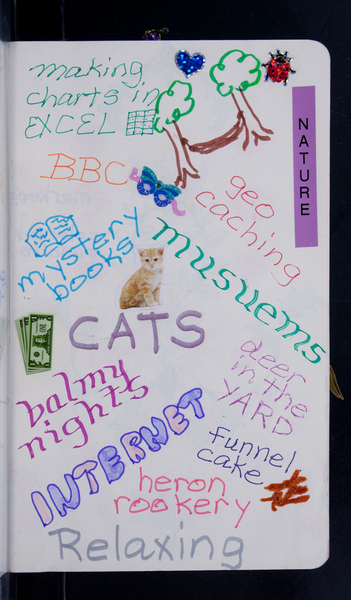 making
charts in
EXCEL
NATURE
BBC
geo
caching
mystery
books
musuems
CATS
deer
in the
YARD
balmy
nights
INTERNET
funnel
cake
heron
rookery
Relaxing